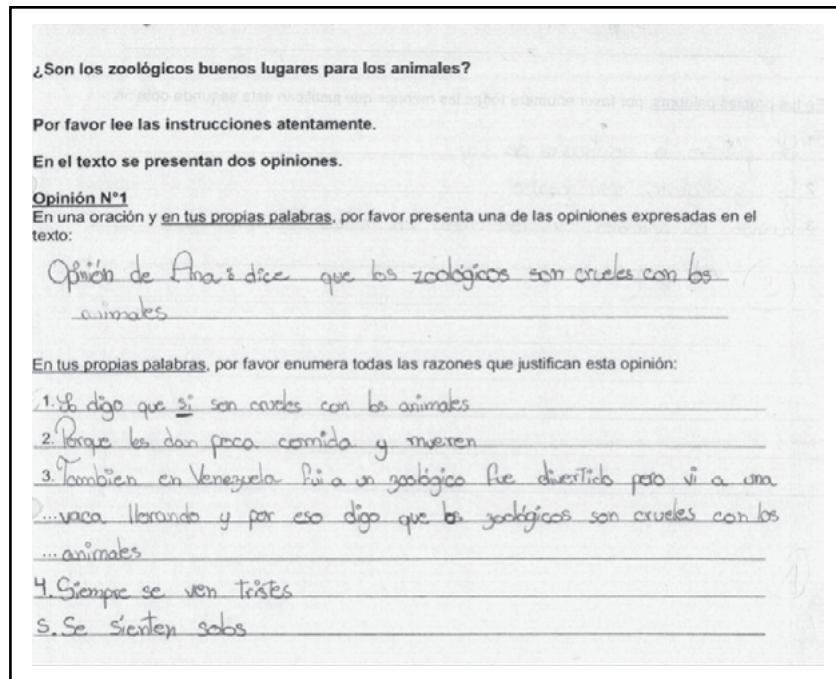 ¿Son los zoológicos buenos lugares para los animales?
Por favor lee las instrucciones atentamente.
En el texto se presentan dos opiniones.
Opinión N°1
En una oración y en tus propias palabras, por favor presenta una de las opiniones expresadas en el
texto:
Opinión de Ana: dice que los zoológicos son crueles con los
animales
En tus propias palabras, por favor enumera todas las razones que justifican esta opinión:
1. Yo digo que si son crueles con los animales
2. Porque les dan poca comida y mueren
3. Tambien en Venezuela fui a un zoológico fue divertido pero vi a una
...vaca llorando y por eso digo que los zoológicos son crueles con los
... animales
4. Siempre se ven tristes
5. Se sienten solos